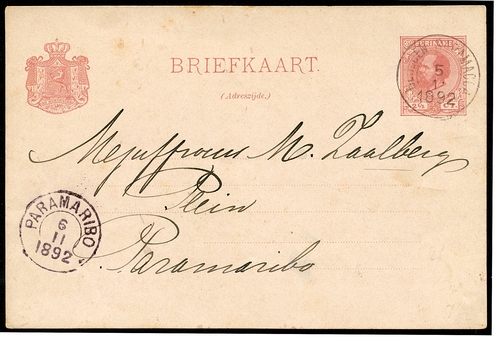 BRIEFKAART.
(Adreszijde.)
SURINAME
5
11
1892
2½
Mejuffrouw M. Zaalberg
Plein
Paramaribo
PARAMARIBO
6
11
1892